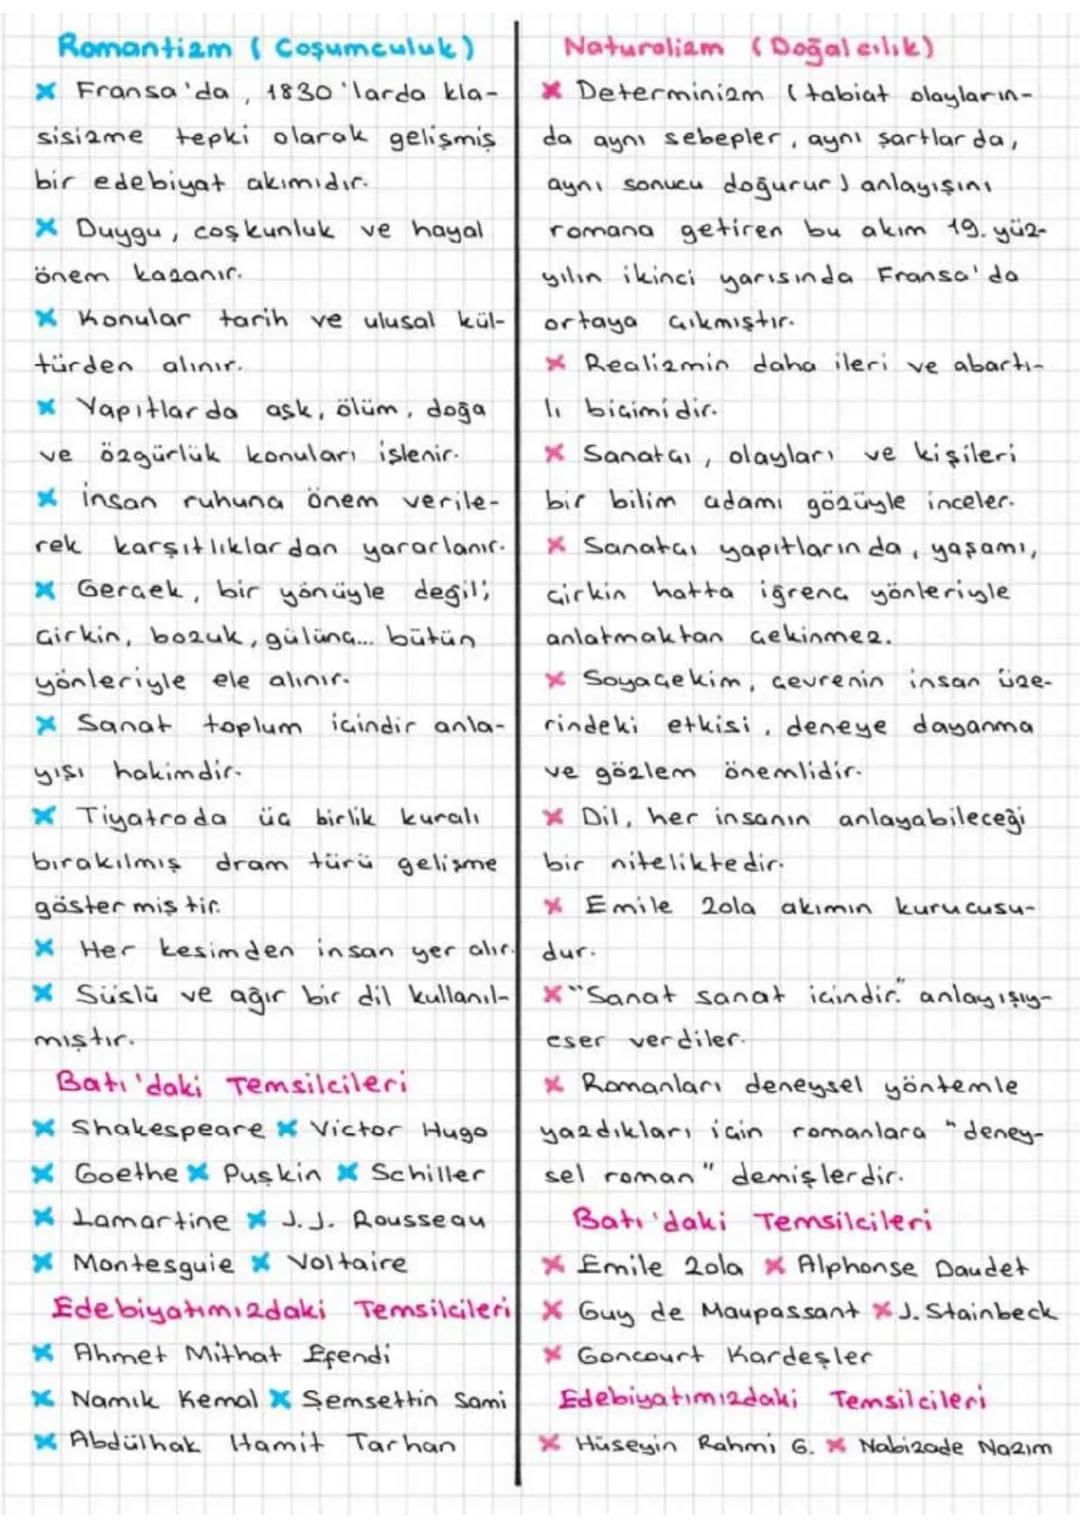 Romantizm ( Coşumculuk )
x Fransa'da, 1830'larda kla-
sisizme tepki olarak gelişmiş
bir edebiyat akımıdır.
x Duygu, coşkunluk ve hayal
önem kazanır.
x Konular tarih ve ulusal kül-
türden alınır.
x Yapıtlarda aşk, ölüm, doğa
ve özgürlük konuları işlenir.
x İnsan ruhuna önem verile-
rek karşıtlıklardan yararlanır.
x Gerçek, bir yönüyle değil;
çirkin, bozuk, gülünç... bütün
yönleriyle ele alınır.
x Sanat toplum içindir anla-
yışı hakimdir.
x Tiyatroda üç birlik kuralı
bırakılmış dram türü gelişme
göstermiştir.
x Her kesimden insan yer alır.
x Süslü ve ağır bir dil kullanıl-
mıştır.
Batı'daki Temsilcileri
x Shakespeare x Victor Hugo
x Goethe x Puşkin x Schiller
x Lamartine x J.J. Rousseau
x Montesguie x Voltaire
Edebiyatımızdaki Temsilcileri
x Ahmet Mithat Efendi
x Namık Kemal x Şemsettin Sami
x Abdülhak Hamit Tarhan
Naturalizm ( Doğalcılık )
x Determinizm ( tabiat olayların-
da aynı sebepler, aynı şartlarda,
aynı sonucu doğurur ) anlayışını
romana getiren bu akım 19. yüz-
yılın ikinci yarısında Fransa'da
ortaya çıkmıştır.
x Realizmin daha ileri ve abartı-
lı biçimidir.
x Sanatçı, olayları ve kişileri
bir bilim adamı gözüyle inceler.
x Sanatçı yapıtlarında, yaşamı,
çirkin hatta iğrenç yönleriyle
anlatmaktan çekinmez.
x Soyaçekim, çevrenin insan üze-
rindeki etkisi, deneye dayanma
ve gözlem önemlidir.
x Dil, her insanın anlayabileceği
bir niteliktedir.
x Emile Zola akımın kurucusu-
dur.
x "Sanat sanat içindir." anlayışıy-
eser verdiler.
x Romanları deneysel yöntemle
yazdıkları için romanlara "deney-
sel roman" demişlerdir.
Batı'daki Temsilcileri
x Emile Zola x Alphonse Daudet
x Guy de Maupassant x J. Stainbeck
x Goncourt Kardeşler
Edebiyatımızdaki Temsilcileri
x Hüseyin Rahmi G. x Nabizade Nazım